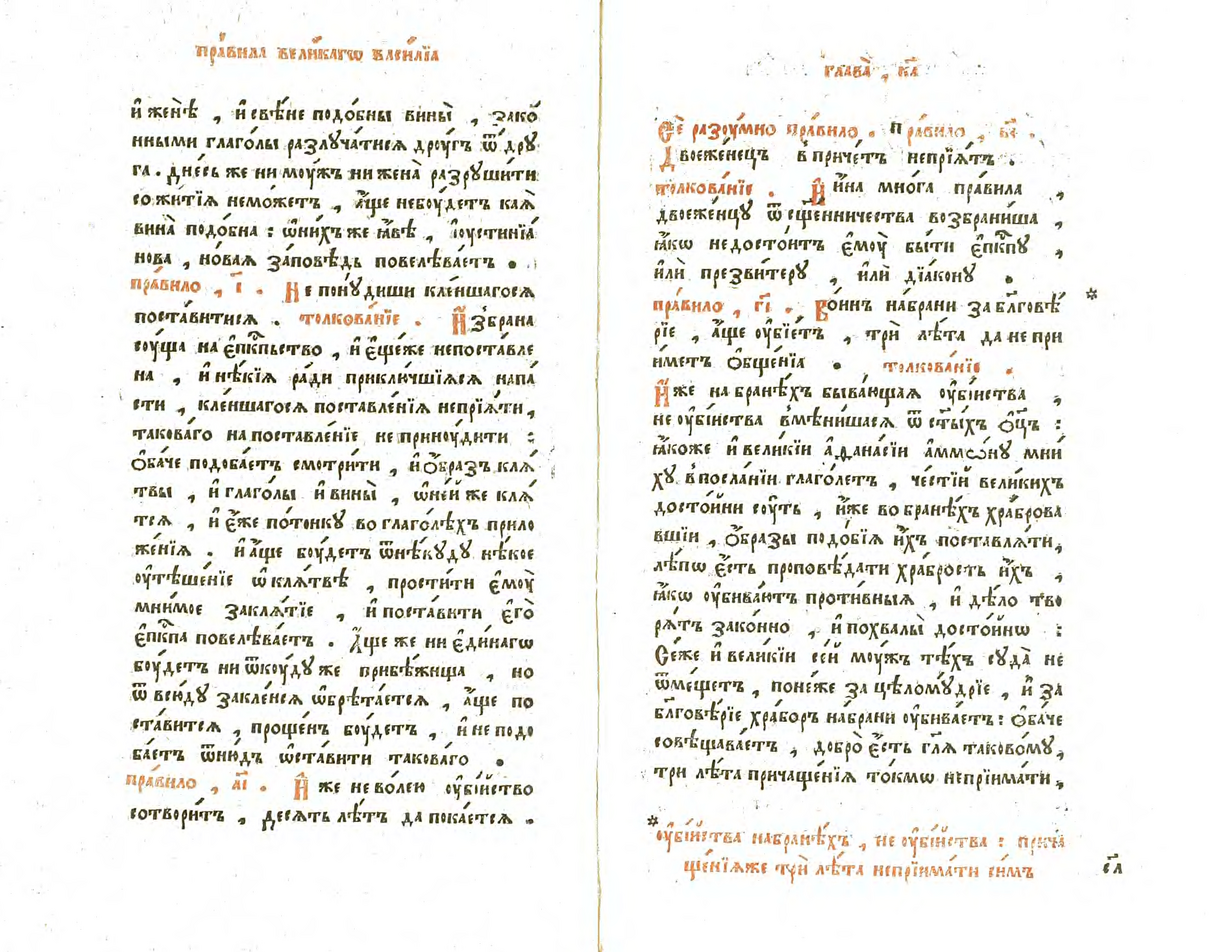 пра́вила вели́кагѡ васи́лїа
и҆ женѣ̀ , и҆ свѣ́не подо́бны вины̀ , зако́
нными глаго́лы разлꙋча́тисѧ дрꙋ́гъ ѿ дрꙋ́
га . дне́сь же ни моу́жъ ни жена̀ разрꙋши́ти
сожитїѧ немо́жетъ , а҆́ще небоу́детъ ка́ѧ
вина̀ подо́бна : ѡ҆ни́хъ же ꙗ҆́вѣ , і҆оустинїа́
нова , но́ваѧ за́повѣдь повелѣва́етъ .
пра́вило , і҃ . Не пону́диши кле́ншагосѧ
поста́витисѧ . толкова́нїе . И҆збрана
соу́ща на є҆пк҃пьство , и҆ є҆ще́же непоставле
на , и҆ нѣ́кїѧ ра́ди приклю́чшїѧсѧ напа́
сти , кле́ншагосѧ поставле́нїѧ непрїѧ́ти ,
такова́го на поставле́нїе не приноу́дити :
ѻ҆ба́че подоба́етъ смотри́ти , и҆ ѻ҆́бразъ клѧ́
твы , и҆ глаго́лы и҆ вины̀ , ѡ҆не́й же клѧ́
тсѧ , и҆ є҆́же по́тонку во глаго́лѣхъ прило
же́нїѧ . и҆ а҆́ще боу́детъ ѿнѣ́кꙋдꙋ нѣ́кое
оу҆тѣше́нїе ѡ҆ клѧ́твѣ , прости́ти є҆моу̀
мни́мое заклѧ́тїе , и҆ поста́вити є҆го̀
є҆пк҃па повелѣва́етъ . А҆́ще же ни є҆ди́нагѡ
боу́детъ ни ѿкоу́дꙋ же прибѣ́жища , но
ѿ всю́дꙋ закле́нсѧ ѡ҆брѣта́етсѧ , а҆́ще по
ста́витсѧ , проще́нъ боу́детъ , и҆ не подо
ба́етъ ѿню́дъ ѡ҆ста́вити такова́го .
пра́вило , а҃і . И҆́же не во́лею оу҆бі́йство
сотвори́тъ , де́сѧть лѣ́тъ да пока́етсѧ .
глава̀ , к҃а
Сѐ разоу́мно пра́вило . Пра́вило , в҃і .
Двоеже́нецъ в при́четъ непрїѧ́тъ .
толкова́нїе . И҆ и҆́на мно́га пра́вила ,
двоеже́нцу ѿ сщ҃е́нничества возбрани́ша ,
ꙗ҆́кѡ недосто́итъ є҆моу̀ бы́ти є҆пк҃пу ,
и҆лѝ презви́теру , и҆лѝ дїа́кону .
пра́вило , г҃і . Во́инъ на́брани за бл҃говѣ́ *
рїе , а҆́ще оу҆бїе́тъ , трѝ лѣ́та да не при
и́метъ ѻ҆бще́нїа . толкова́нїе .
И҆́же на бране́хъ быва́ющаѧ оу҆бі́йства ,
не оу҆бі́йства вмѣни́шасѧ ѿ ст҃ы́хъ ѻ҆ц҃ъ :
ꙗ҆́коже и҆ вели́кїи а҆ѳана́сїи а҆ммѡ́нꙋ мни́
хꙋ в посла́нїи глаго́летъ , че́стїй вели́кихъ
досто́йни соу́ть , и҆́же во бране́хъ хра́брова
вшїи , ѻ҆́бразы подо́бїѧ и҆́хъ поставлѧ́ти ,
лѣ́пѡ є҆́сть проповѣ́дати хра́брость и҆́хъ ,
ꙗ҆́кѡ оу҆бива́ютъ проти́вныѧ , и҆ дѣ́ло тво
рѧ́тъ зако́нно , и҆ похвалы̀ досто́йнѡ :
Се́же и҆ вели́кїи се́й моу́жъ тѣ́хъ сꙋда̀ не
ѿме́щетъ , поне́же за цѣломꙋ́дрїе , и҆ за
бл҃говѣ́рїе хра́боръ на́брани оу҆бива́етъ : ѻ҆ба́че
совѣщава́етъ , добро̀ є҆́сть гл҃ѧ таково́мꙋ ,
три лѣ́та причаще́нїѧ то́кмѡ непрїима́ти .
* оу҆бі́йства набране́хъ , не оу҆бі́йства : прича
ще́нїѧже трѝ лѣ́та непрїима́ти си́мъ
с҃л